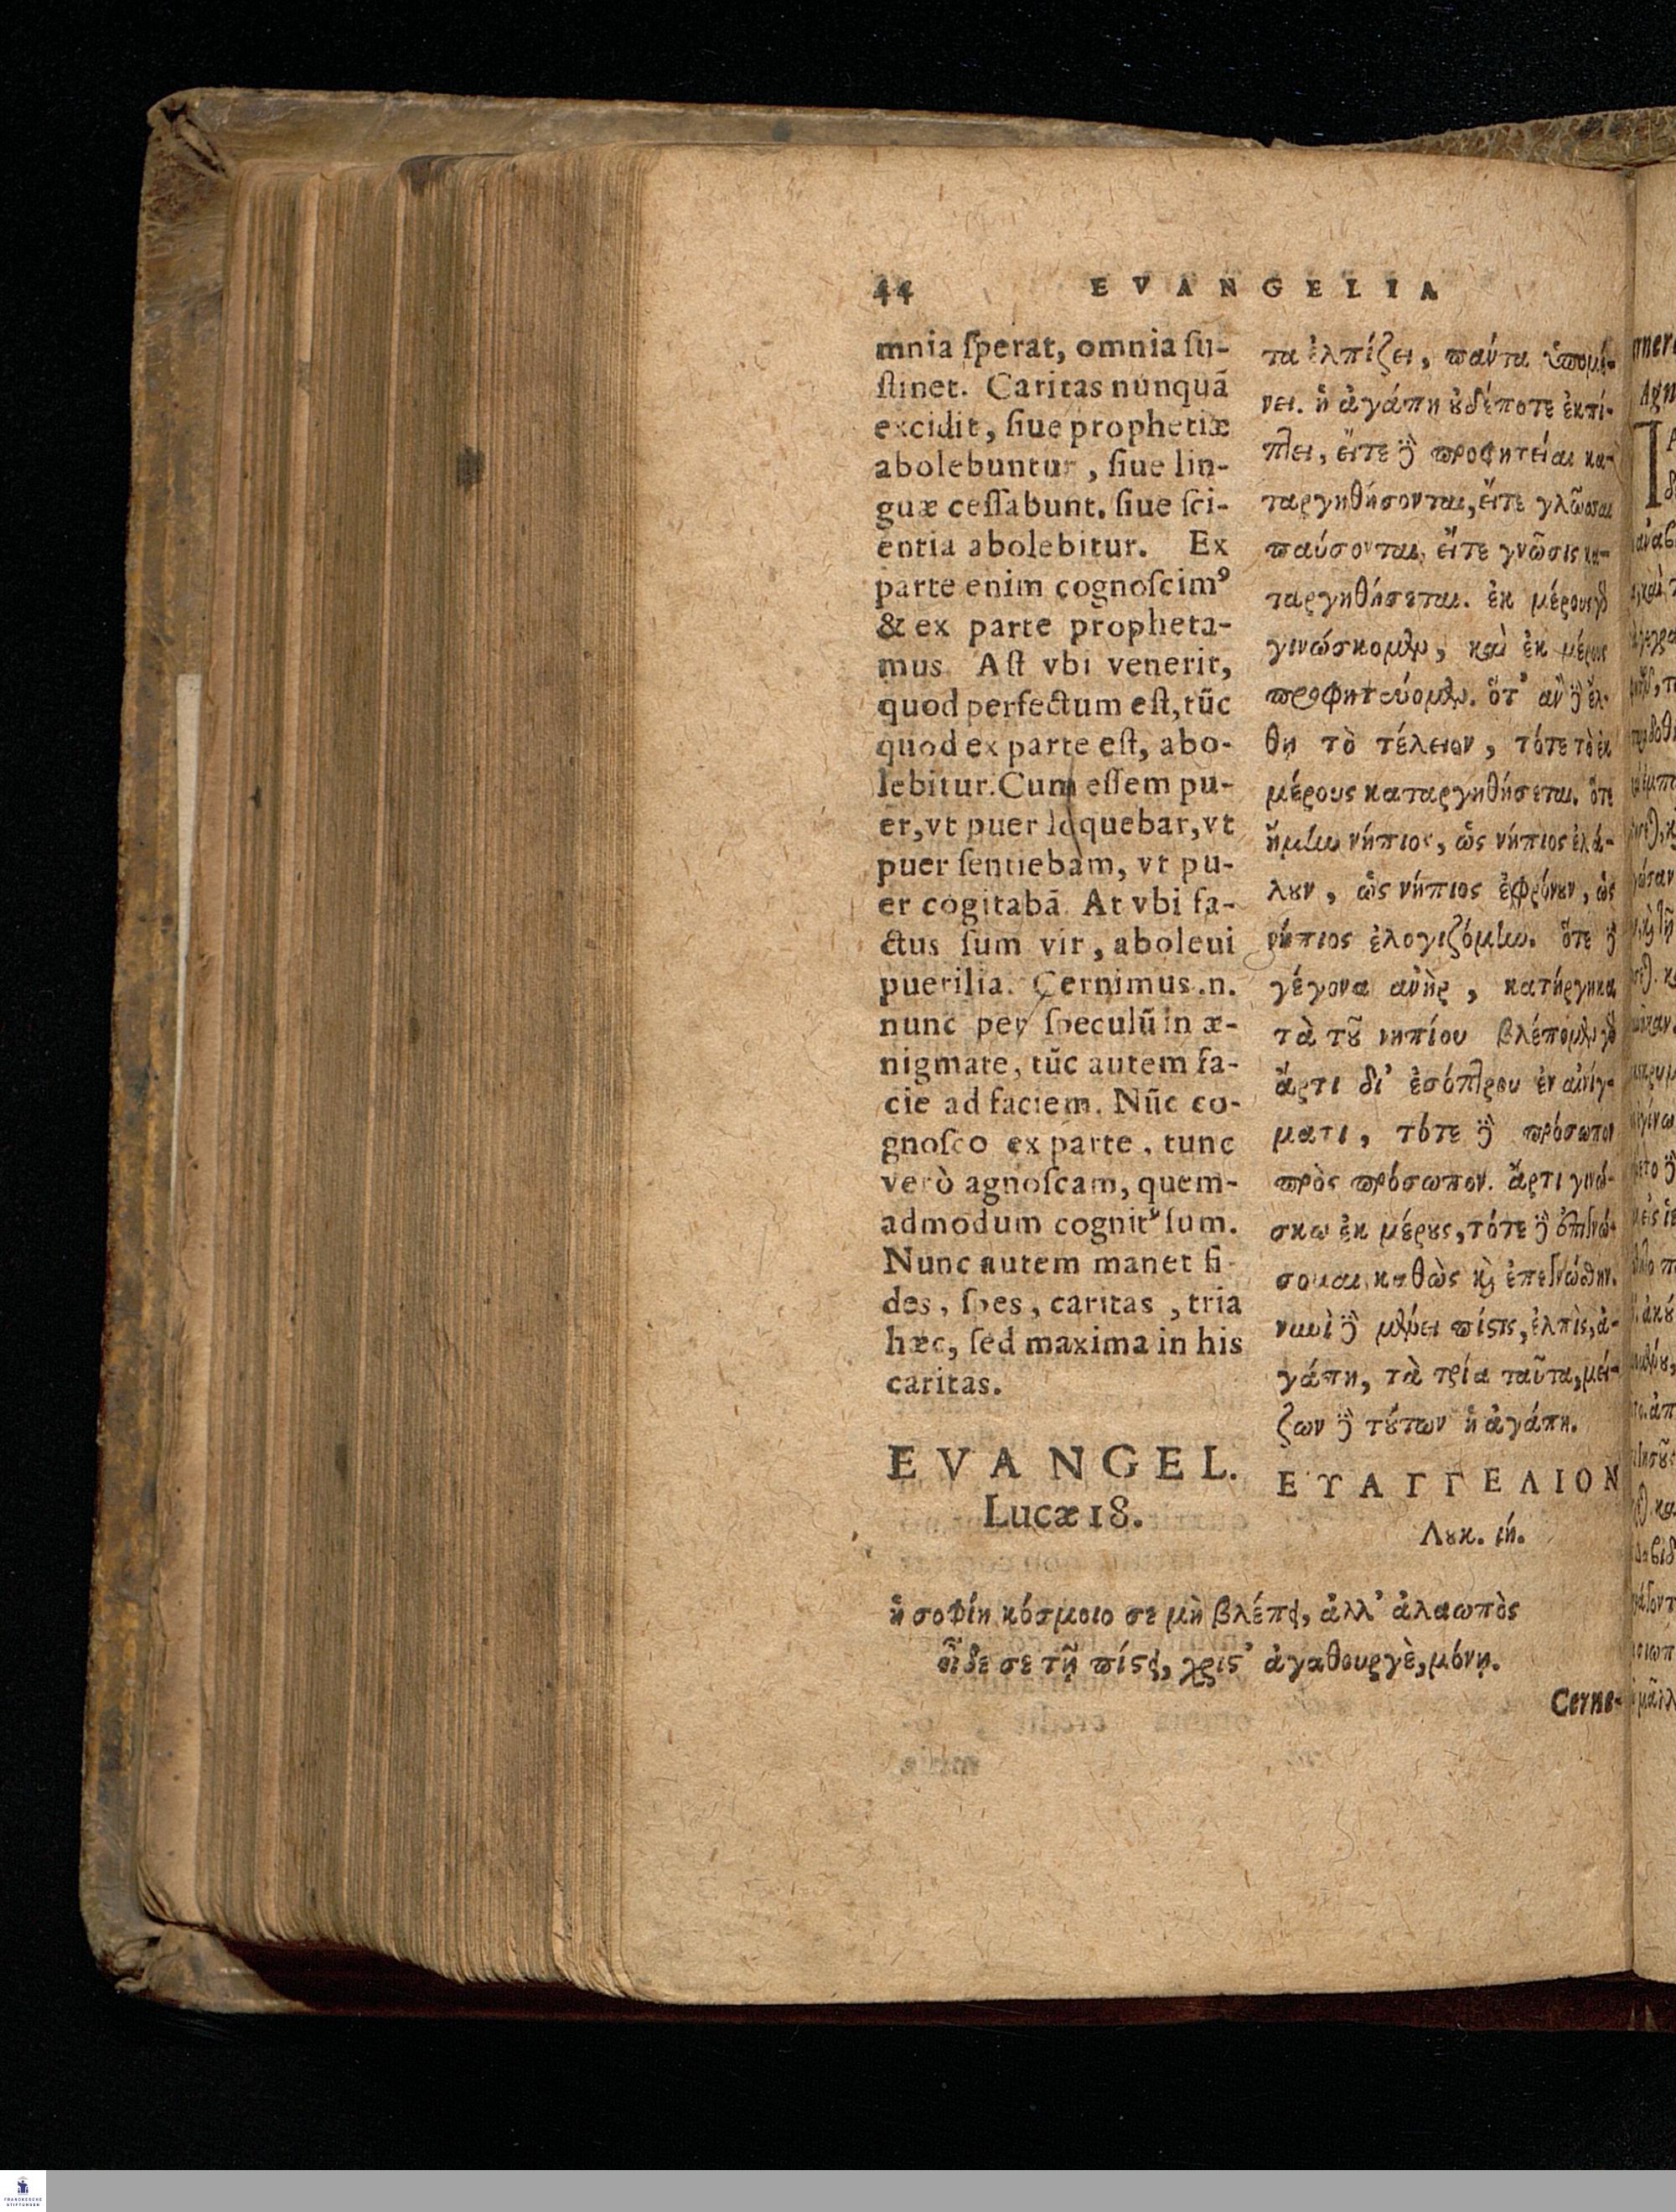 44 EVANGELIA
mnia ſperat, omnia ſu-
ſtinet. Caritas nunquã
excidit, ſiue prophetiæ
abolebuntur, ſiue lin-
guæ ceſſabunt. ſiue ſci-
entia abolebitur. Ex
parte enim cognoſcimꝰ
& ex parte propheta-
mus. Aſt vbi venerit,
quod perfectum eſt, tũc
quod ex parte eſt, abo-
lebitur. Cum eſſem pu-
er, vt puer loquebar, vt
puer ſentiebam, vt pu-
er cogitabã. At vbi fa-
ctus ſum vir, aboleui
puerilia. Cernimus .n.
nunc per ſpeculũ in æ-
nigmate, tũc autem fa-
cie ad faciem. Nũc co-
gnoſco ex parte, tunc
verò agnoſcam, quem-
admodum cognitꝰ ſum.
Nunc autem manet fi-
des, ſpes, caritas, tria
hæc, ſed maxima in his
caritas.
EVANGEL.
Lucæ 18.
τα ἐλπίζει, πάντα ὑπομέ-
νει. ἡ ἀγάπη ȣδέποτε ἐκπί-
πτει, εἴτε δὲ προφητείαι κα-
ταργηθήσονται, εἴτε γλῶσσαι
παύσονται, εἴτε γνῶσις κα-
ταργηθήσεται. ἐκ μέρους γδ
γινώσκομεν, καὶ ἐκ μέρους
προφητεύομεν. ὅτ' ἂν δὲ ἔλ-
θῃ τὸ τέλειον, τότε τὸ ἐκ
μέρους καταργηθήσεται. ὅτε
ἤμην νήπιος, ὡς νήπιος ἐλά-
λȣν, ὡς νήπιος ἐφρόνȣν, ὡς
νήπιος ἐλογιζόμην. ὅτε δὲ
γέγονα ἀνὴρ, κατήργηκα
τὰ τȣ͂ νηπίου βλέπομεν γδ
ἄρτι δι' ἐσόπτρου ἐν αἰνίγ-
ματι, τότε δὲ πρόσωπον
πρὸς πρόσωπον. ἄρτι γινώ-
σκω ἐκ μέρȣς, τότε δὲ ἐπιγνώ-
σομαι καθὼς ϗ ἐπεγνώσθην.
νυνὶ δὲ μένει πίϛις, ἐλπὶς, ἀ-
γάπη, τὰ τρία ταῦτα, μεί-
ζων δὲ τȣ́των ἡ ἀγάπη.
ΕΥΑΓΓΕΛΙΟΝ
Λȣκ. ιή.
ἡ σοφίη κόσμοιο σε μὴ βλέπει, ἀλλ' ἀλαωπὸς
οἶδε σε τῇ πίϛει, χριϛ' ἀγαθουργὲ, μόνῃ.
Cerne-